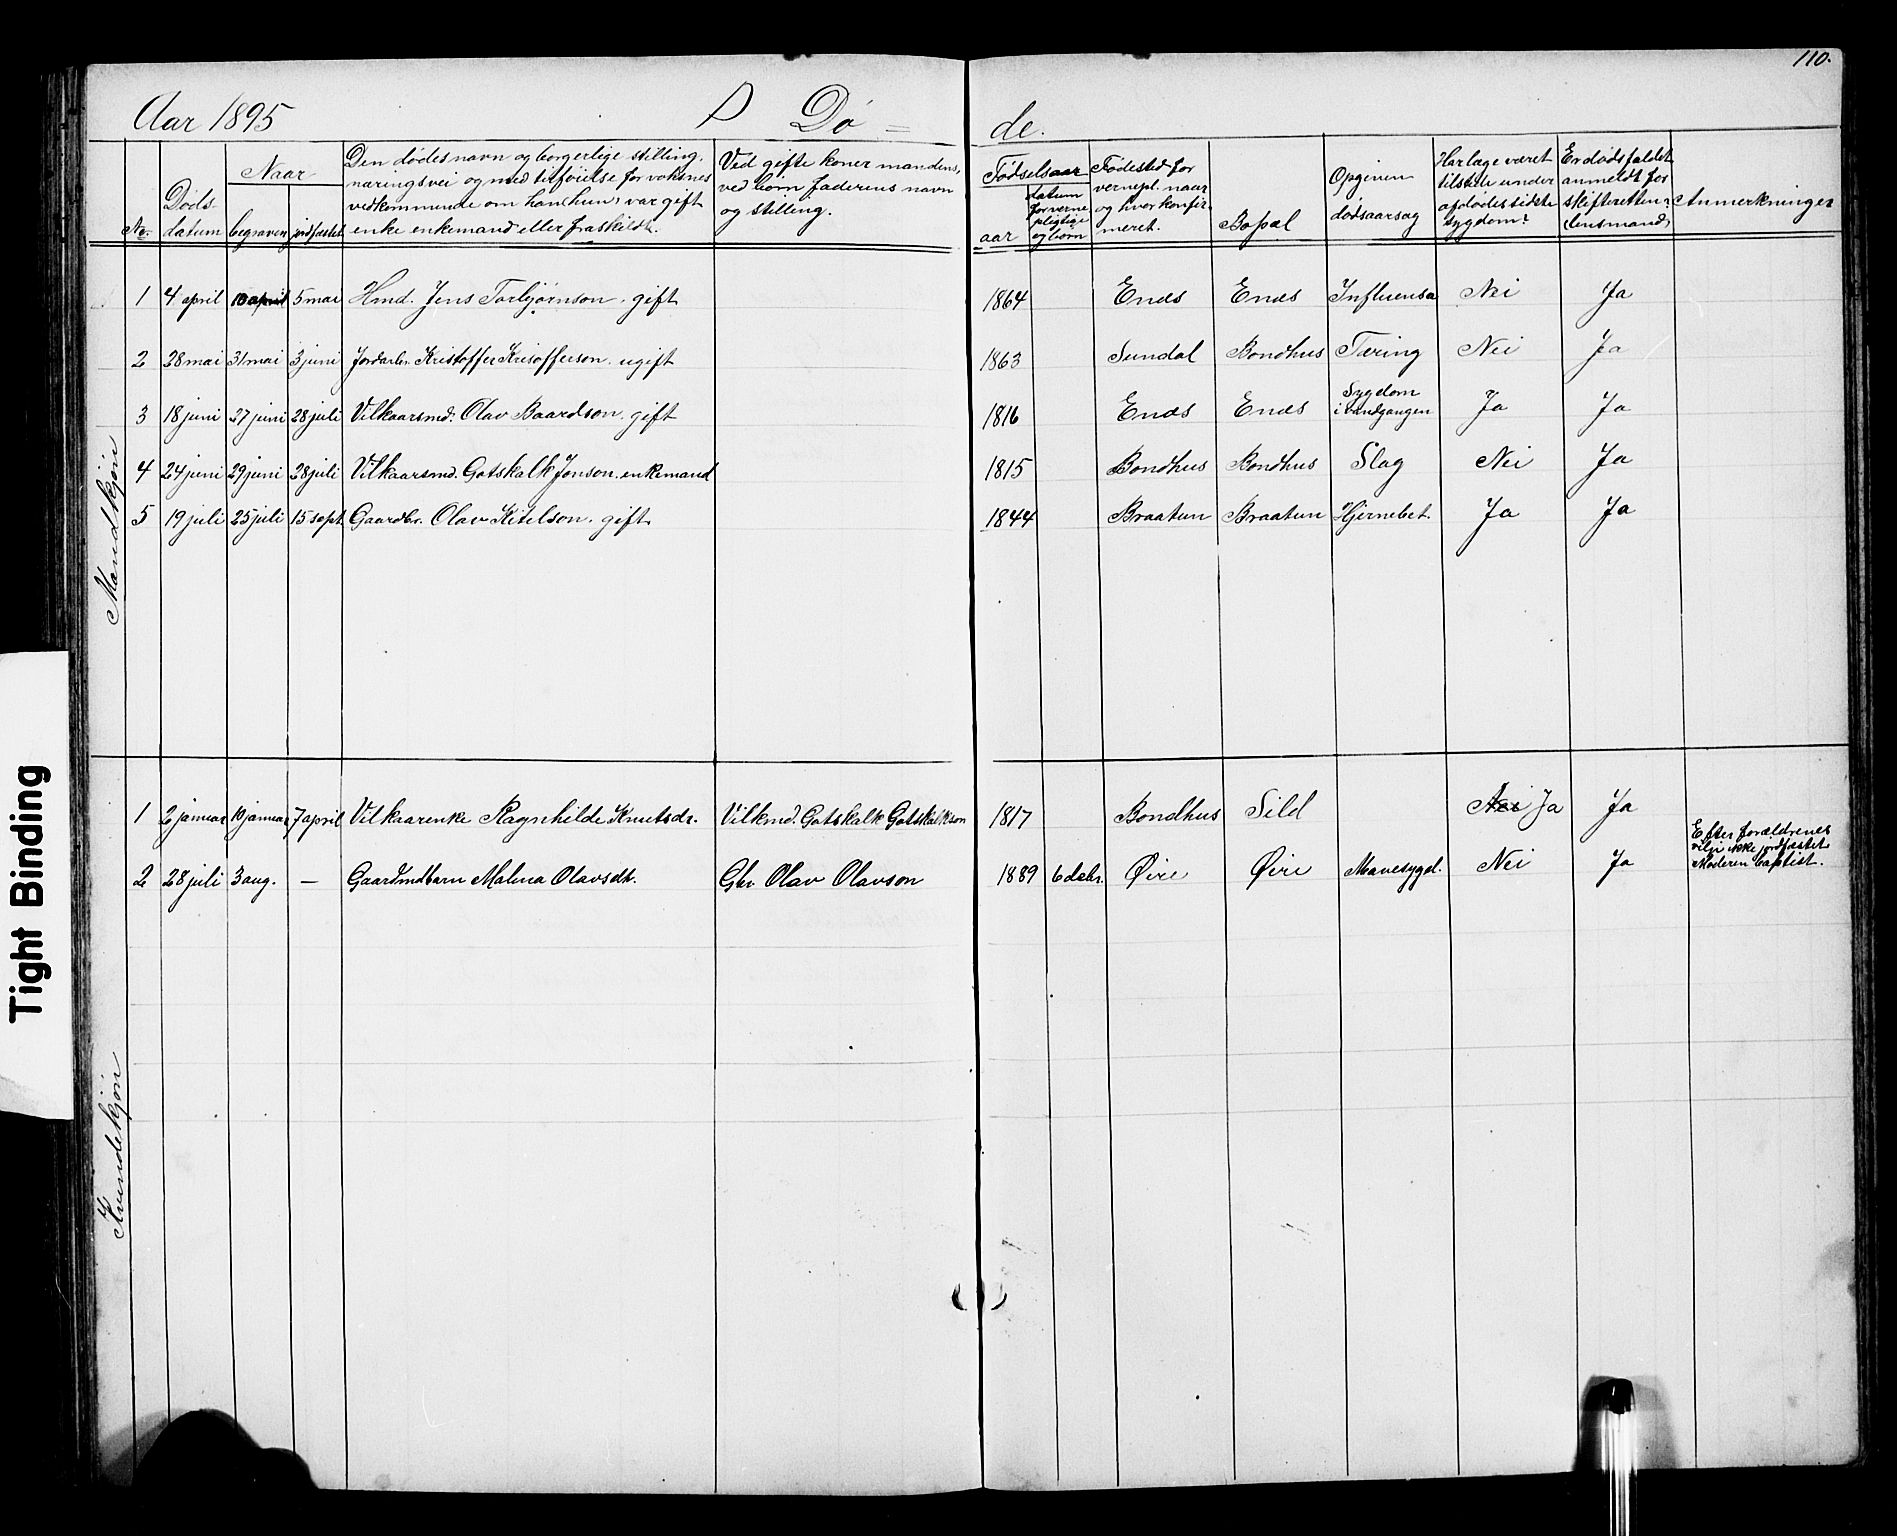 110.
Aar 1895 D Dø = de.
No.
Dødsdatum
Naar
begraven
jordfæstet
Den dødes navn og borgerlige stilling,
næringsvei og med tilføielse for voksnes
vedkommende om han (hun) var gift
enke enkemand eller fraskildt.
Ved gifte koner mandens,
ved børn faderens navn
og stilling.
Fødselsaar
aar
datum
for verne
pligtige
og børn
Fødested for
vernepl. naar
og hvor konfir-
meret.
Bopæl
Opgiven
dødsaarsag
Har læge været
tilstede under
afdødes sidste
sygdom?
Er dødsfaldet
anmeldt for
skifteretten?
(lensmand)
Anmerkninger
Mandkjøn
1 4 april 10 april 5 mai Hmd. Jens Torbjørnson. gift 1864 Enes Enes Influensa Nei Ja
2 28 mai 31 mai 3 juni Jordarb. Kristoffer Krisofferson. ugift 1863 Sundal Bondhus Tæring Nei Ja
3 18 juni 27 juni 28 juli Vilkaarsmd. Olav Baardson. gift 1816 Enes Enes Sygdom i vandgangen Ja Ja
4 24 juni 29 juni 28 juli Vilkaarsmd. Gotskalk Jonson. enkemand 1815 Bondhus Bondhus Slag Nei Ja
5 19 juli 25 juli 15 sept. Gaardbr. Olav Ketelson. gift 1844 Braatun Braatun Hjernebet. Ja Ja
Kvindekjøn
1 2 januar 10 januar 7 april Vilkaarenke Ragnhilde Knutsdr. Vilkmd. Gotskalk Gotskalkson 1817 Bondhus Sild Nei Ja Ja
2 28 juli 3 aug. — Gaardmdbarn Malena Olavsdtr. Gbr Olav Olavson 1889 6 debr. Øire Øire Mavesygd. Nei Ja
Efter forældrenes
vilje ikke jordfæstet
Moderen baptist.
Tight Binding